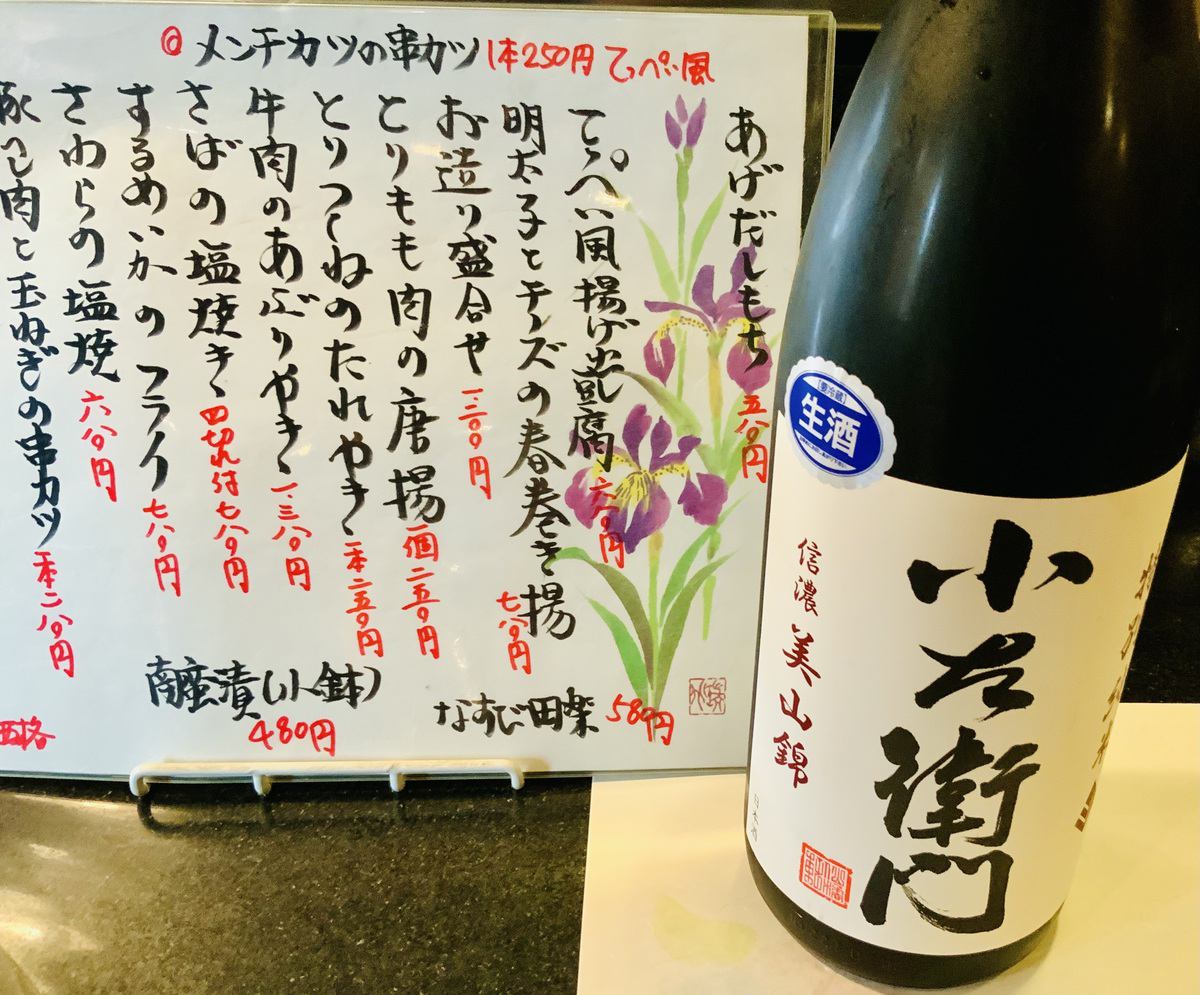 ◎メンチカツの串カツ 1本250円 てっぺい風
あげだしもち 五八〇円
てっぺい風揚げ出豆腐 六八〇円
明太子とチーズの春巻き揚 七八〇円
お造り盛合せ
とりもも肉の唐揚 一個二五〇円
とりつくねのたれやき 一本二五〇円
牛肉のあぶりやき 一、三八〇円
さばの塩焼き 四切れ付七八〇円
するめいかのフライ 七八〇円
さわらの塩焼 六八〇円
豚ヒレ肉と玉ねぎの串カツ 一本二八〇円
南蛮漬(小鉢)
480円
なすび田楽 580円
要冷蔵
生酒
小左衛門
信濃美山錦
日本酒